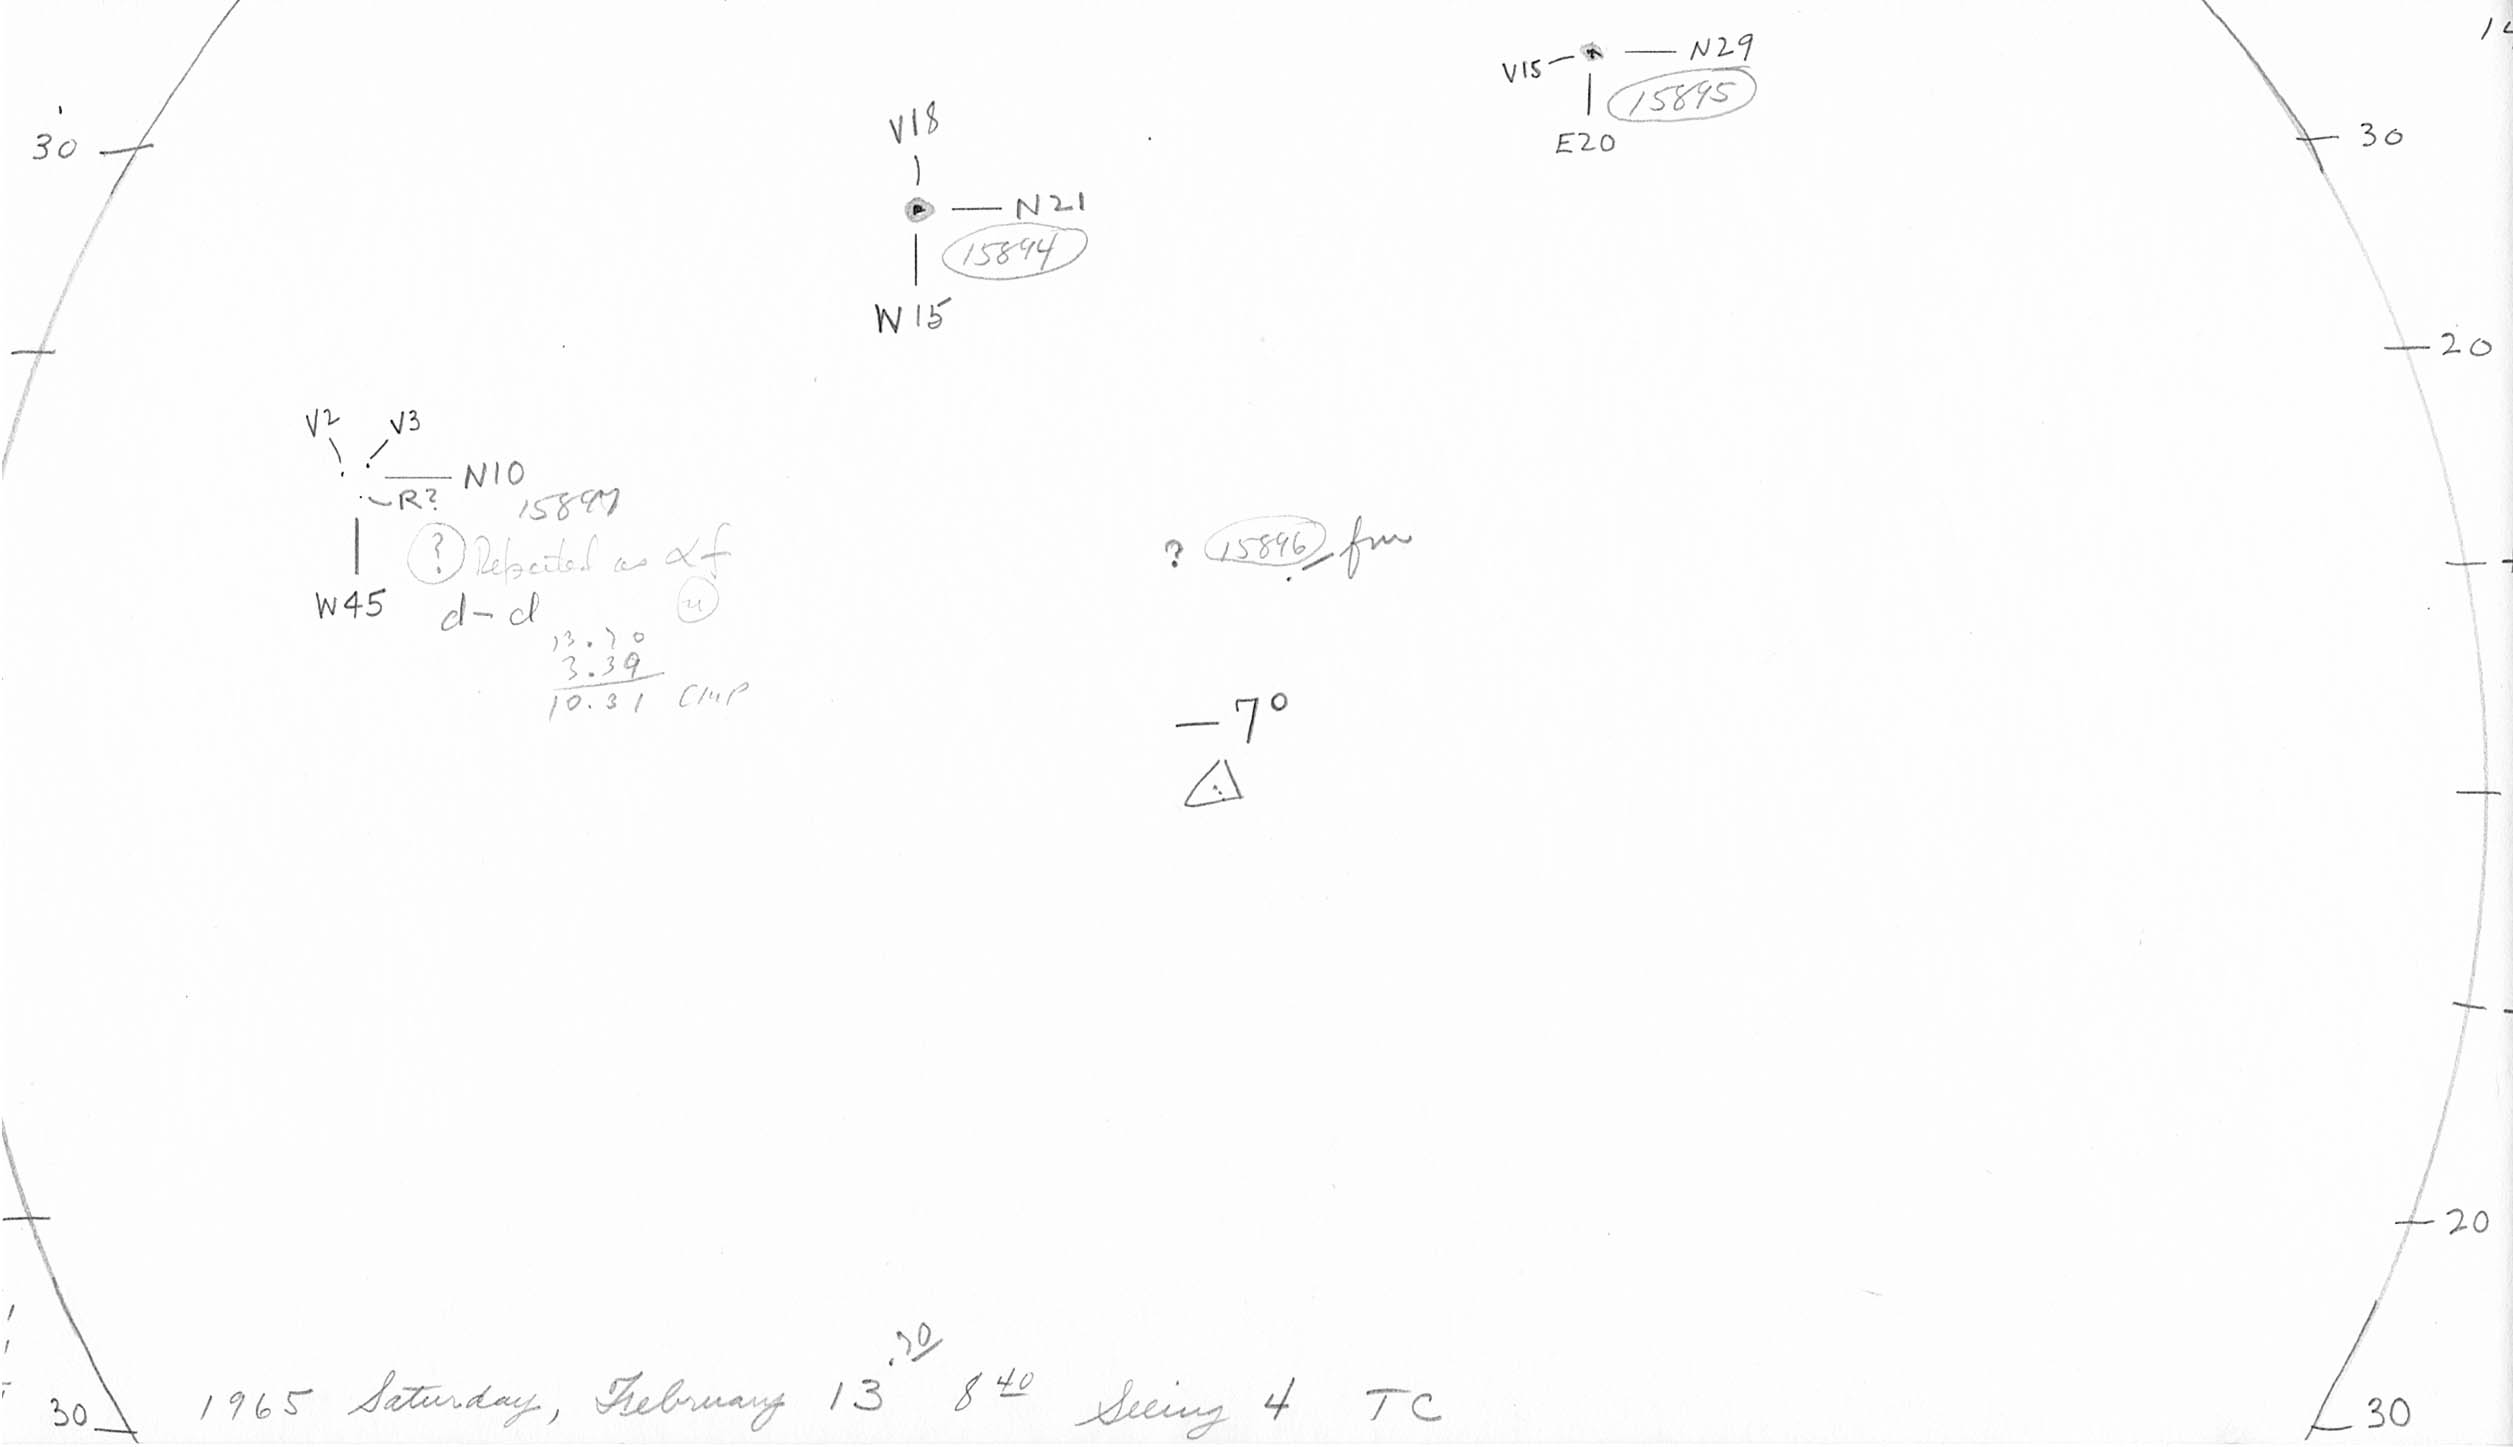 V15 N29
15895
E20
30
30
V18
N21
15894
W15
20
V2 V3
N10
R?
15897
? Repeated as αf
W45 d-d
13.70
3.39
10.31 CMP
? 15896
-7°
20
.70
1965 Saturday, February 13 8 40 Seeing 4 TC
30
30